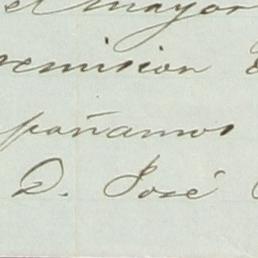 el mayor
remision
pañamos
D. José